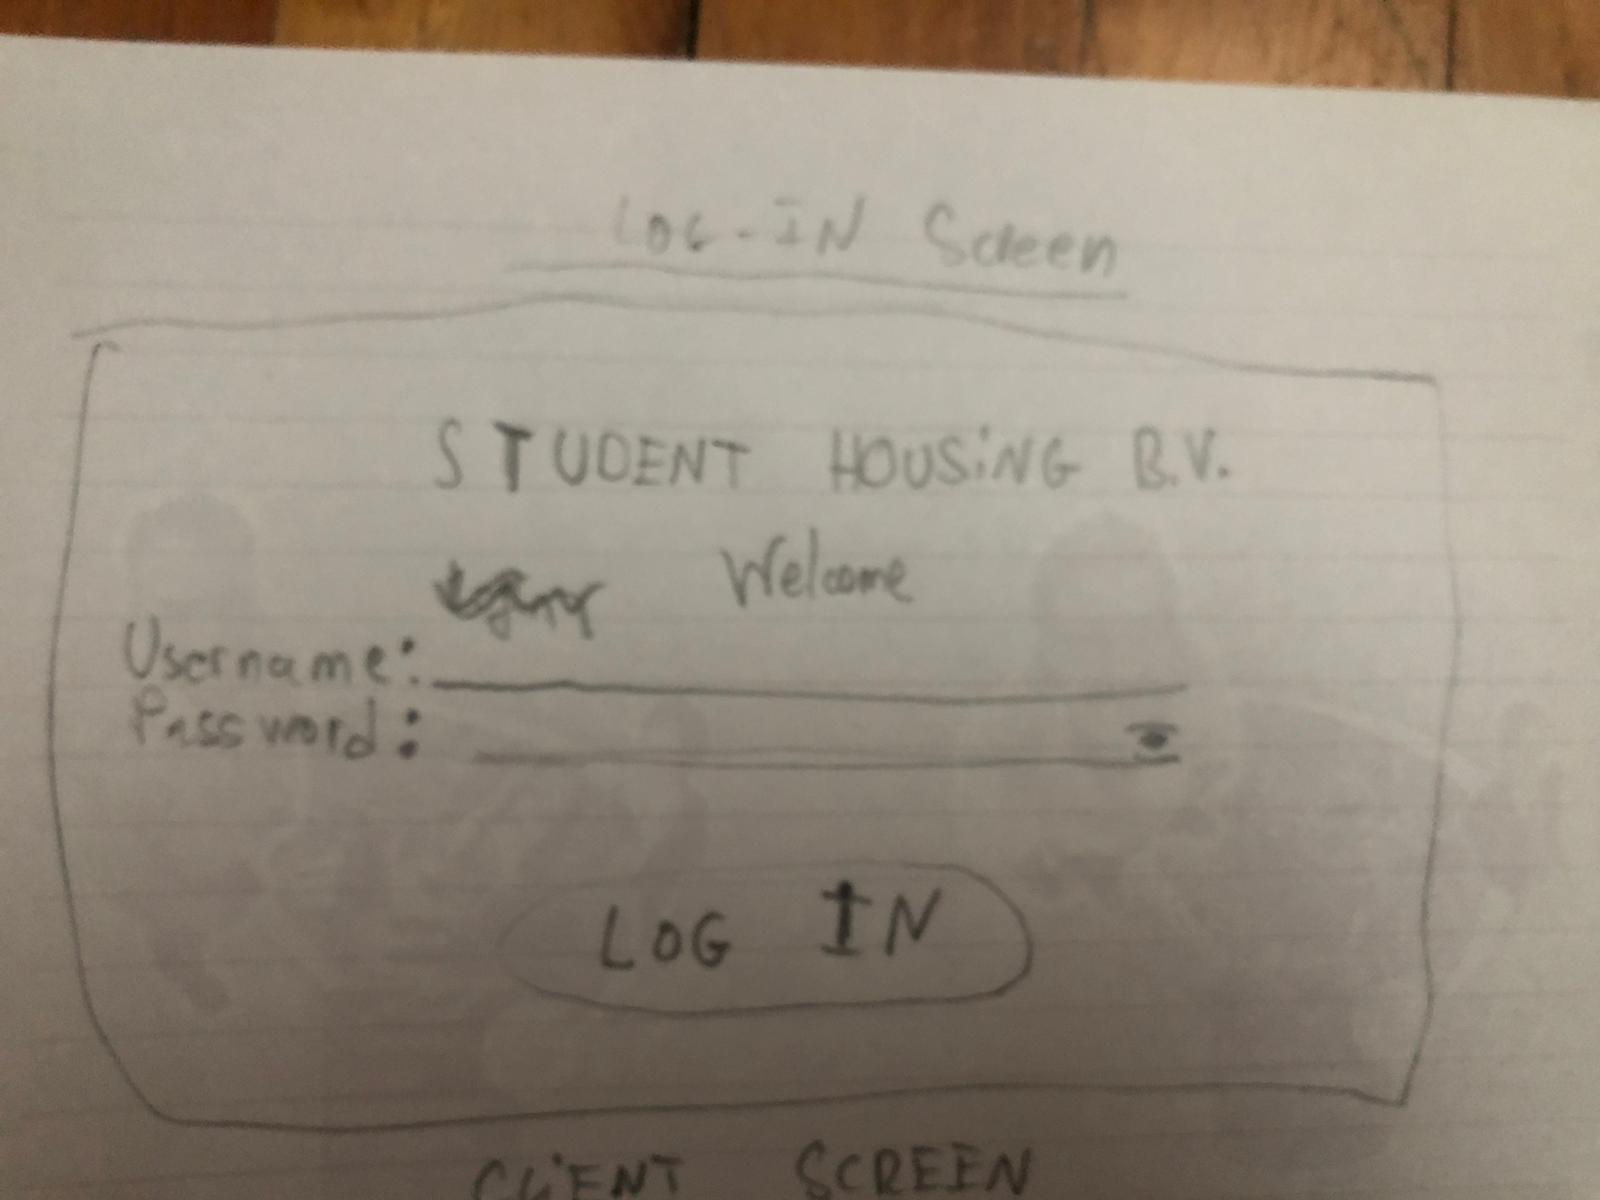 LOG-IN Screen
STUDENT HOUSING B.V.
Welcome
Username:
Password:
LOG IN
CLIENT SCREEN